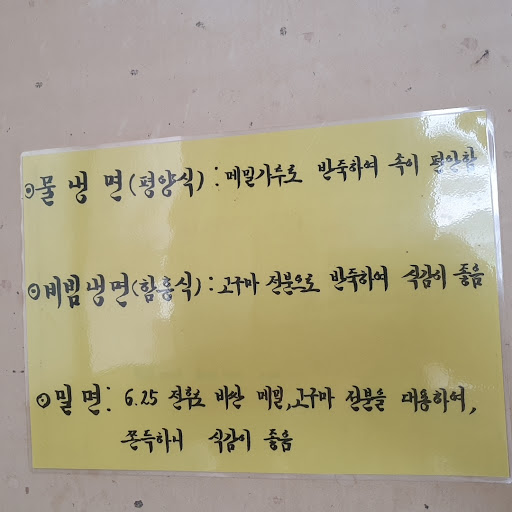 ⊙물냉면(평양식) : 메밀가루로 반죽하여 속이 평안함
⊙비빔냉면(함흥식) : 고구마 전분으로 반죽하여 식감이 좋음
⊙밀면 : 6.25 전후로 비싼 메밀, 고구마 전분을 대용하여,
쫀득하니 식감이 좋음